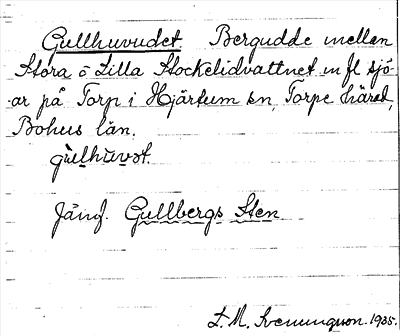 Gullhuvudet. Bergudde mellan
Stora ö Lilla Stockelidvattnet m fl sjö-
ar på Torp i Hjärtum sn, Torpe härad,
Bohus län.
gulhuvət.
Jämf. Gullbergs Sten
L. M. Svenungsson. 1935.